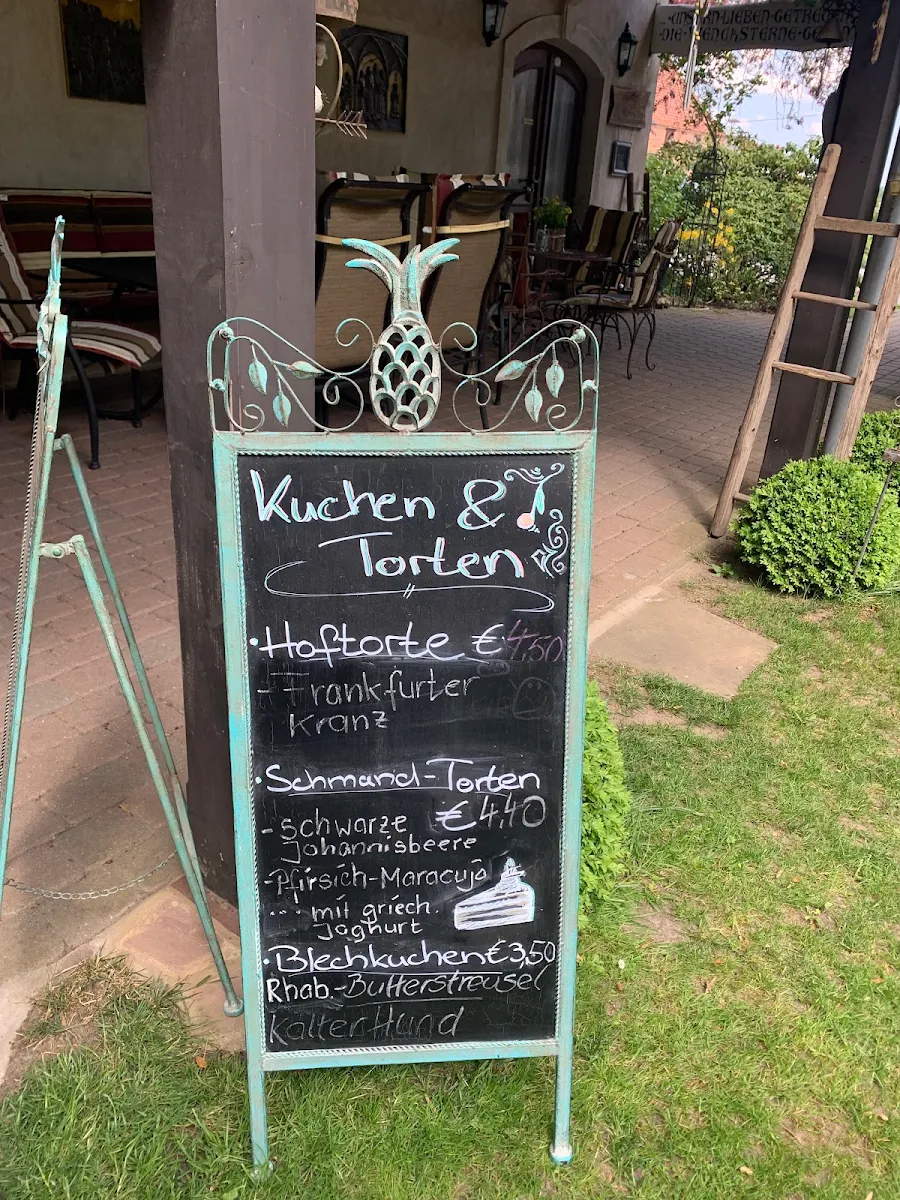 UNSERN LIEBEN GETREUEN
Kuchen &
Torten
• Hoftorte € 4,50
- Frankfurter
Kranz
• Schmand-Torten
€ 4,40
- schwarze
Johannisbeere
- Pfirsich-Maracuja
... mit griech.
Joghurt
• Blechkuchen € 3,50
Rhab.-Butterstreusel
Kalter Hund